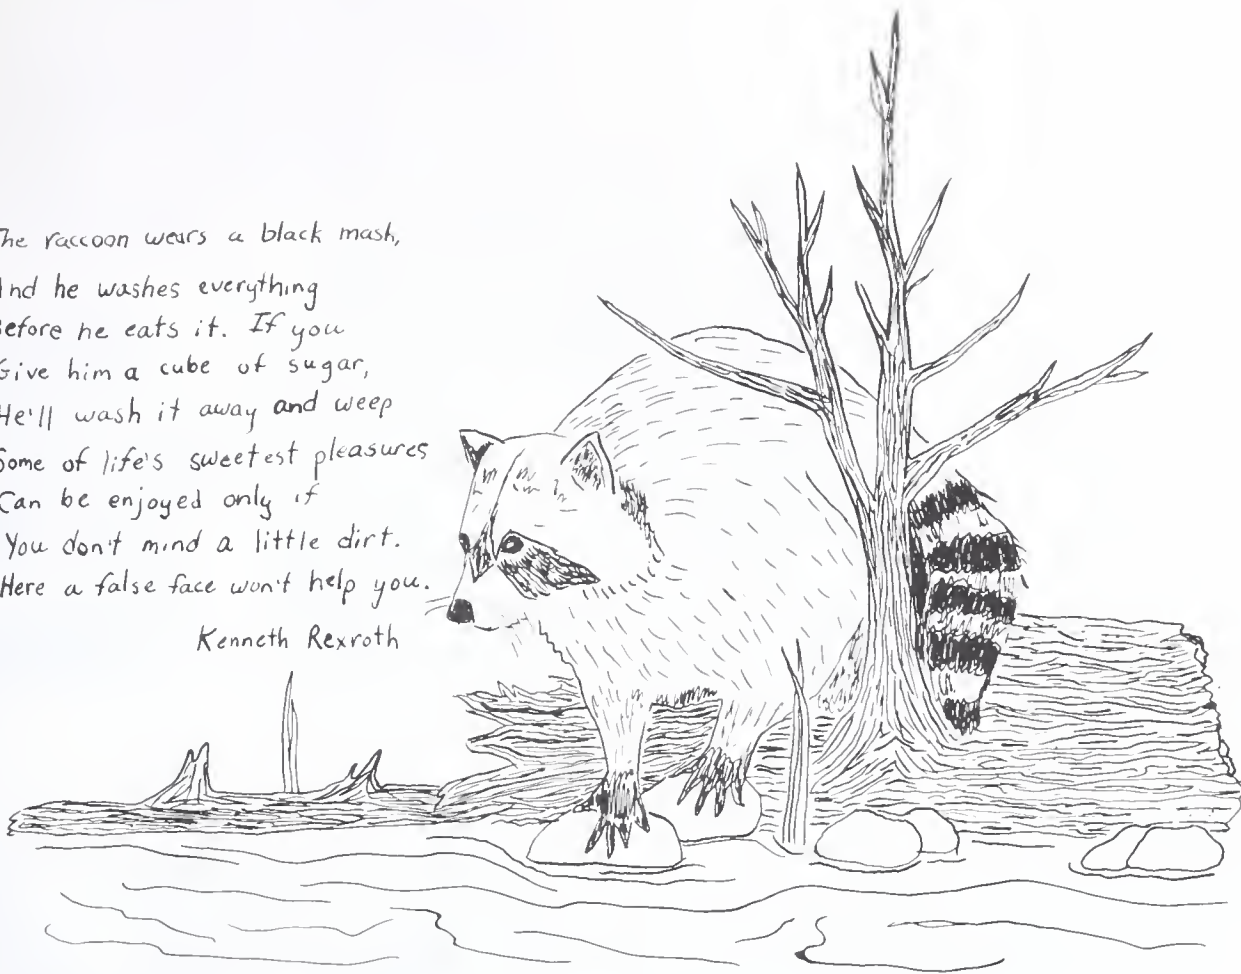 The raccoon wears a black mash,
And he washes everything
Before he eats it. If you
Give him a cube of sugar,
He'll wash it away and weep
Some of life's sweetest pleasures
Can be enjoyed only if
You don't mind a little dirt.
Here a false face won't help you.
Kenneth Rexroth